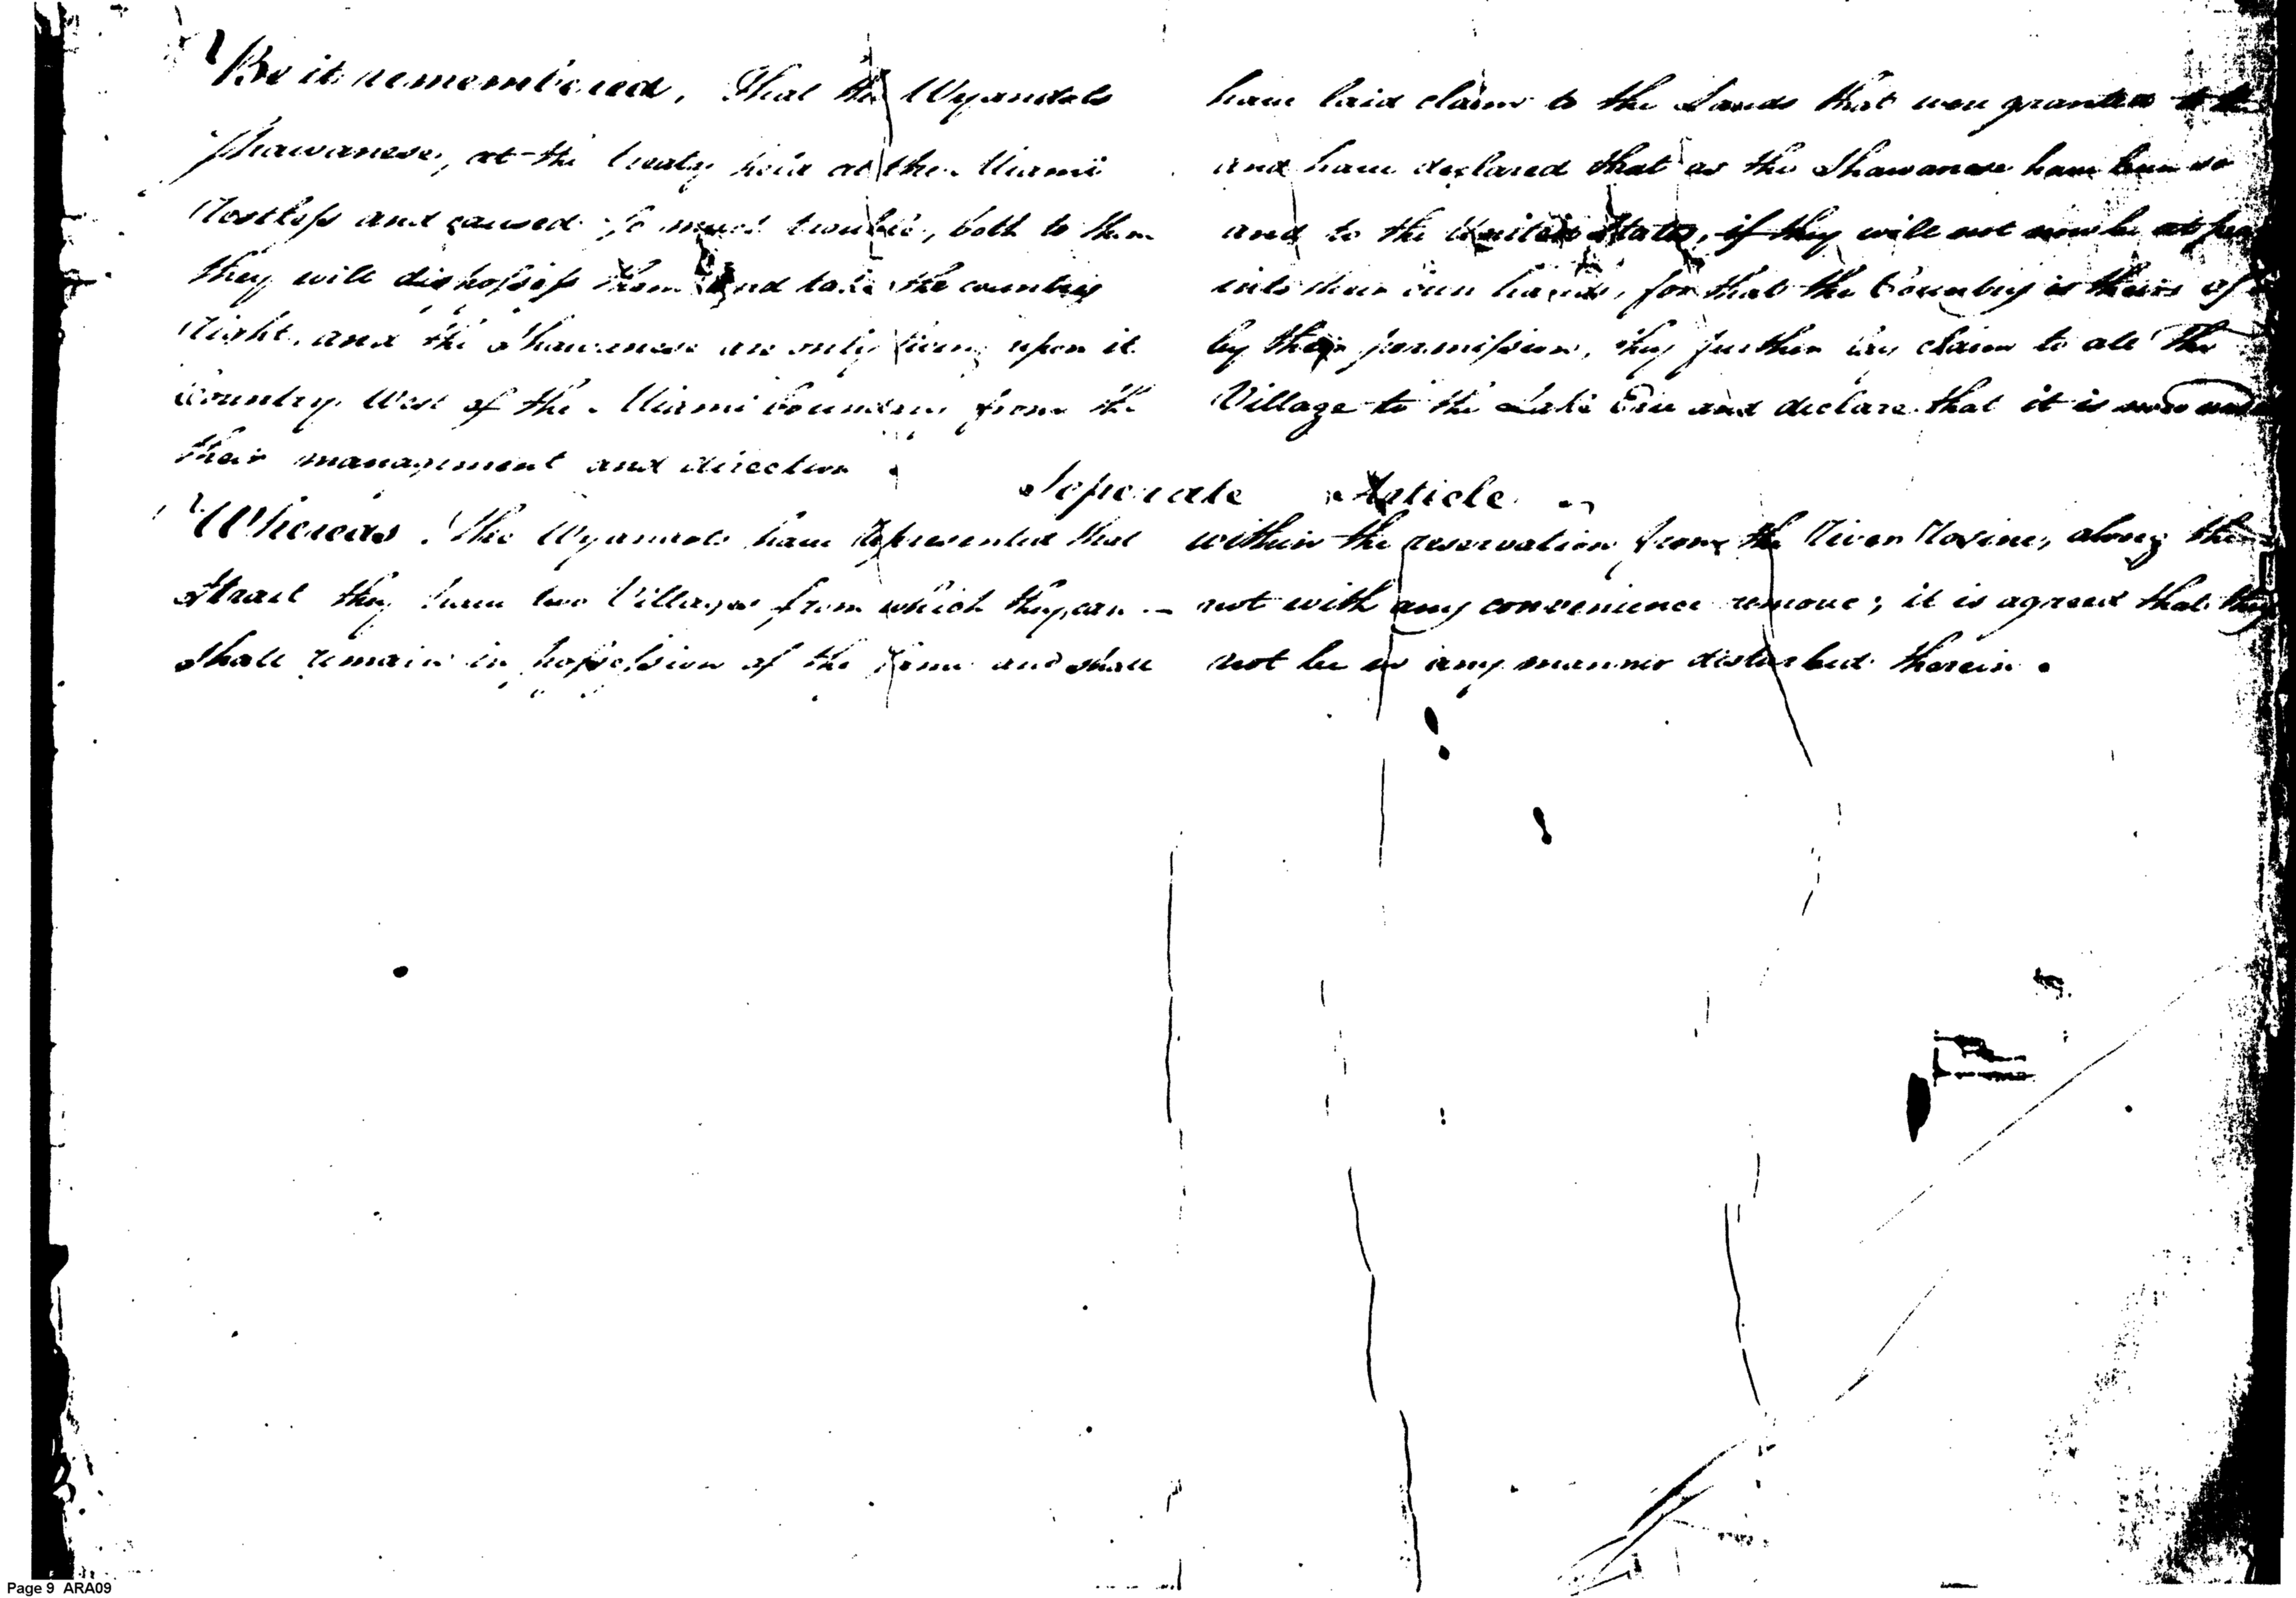 Be it remembered, That the Wyandots have laid claim to the Lands that were granted to the
Shawanese, at the treaty held at the Miami and have declared that as the Shawanese have been so
Restless and caused so much trouble, both to them and to the United States, if they will not now be at peace
they will dispossess them and take the country into their own hands, for that the Country is theirs of
Right, and the Shawanese are only living upon it by their permission, they further lay claim to all the
Country West of the Miami boundary from the Village to the Lake Erie and declare that it is now under
their management and direction .
Seperate Article
Whereas The Wyandots have represented that within the reservation from the River Rosine, along the
Strait they have two Villages from which they can not with any convenience remove; it is agreed that they
shall remain in possession of the same and shall not be in any manner disturbed therein .
Page 9 ARA09